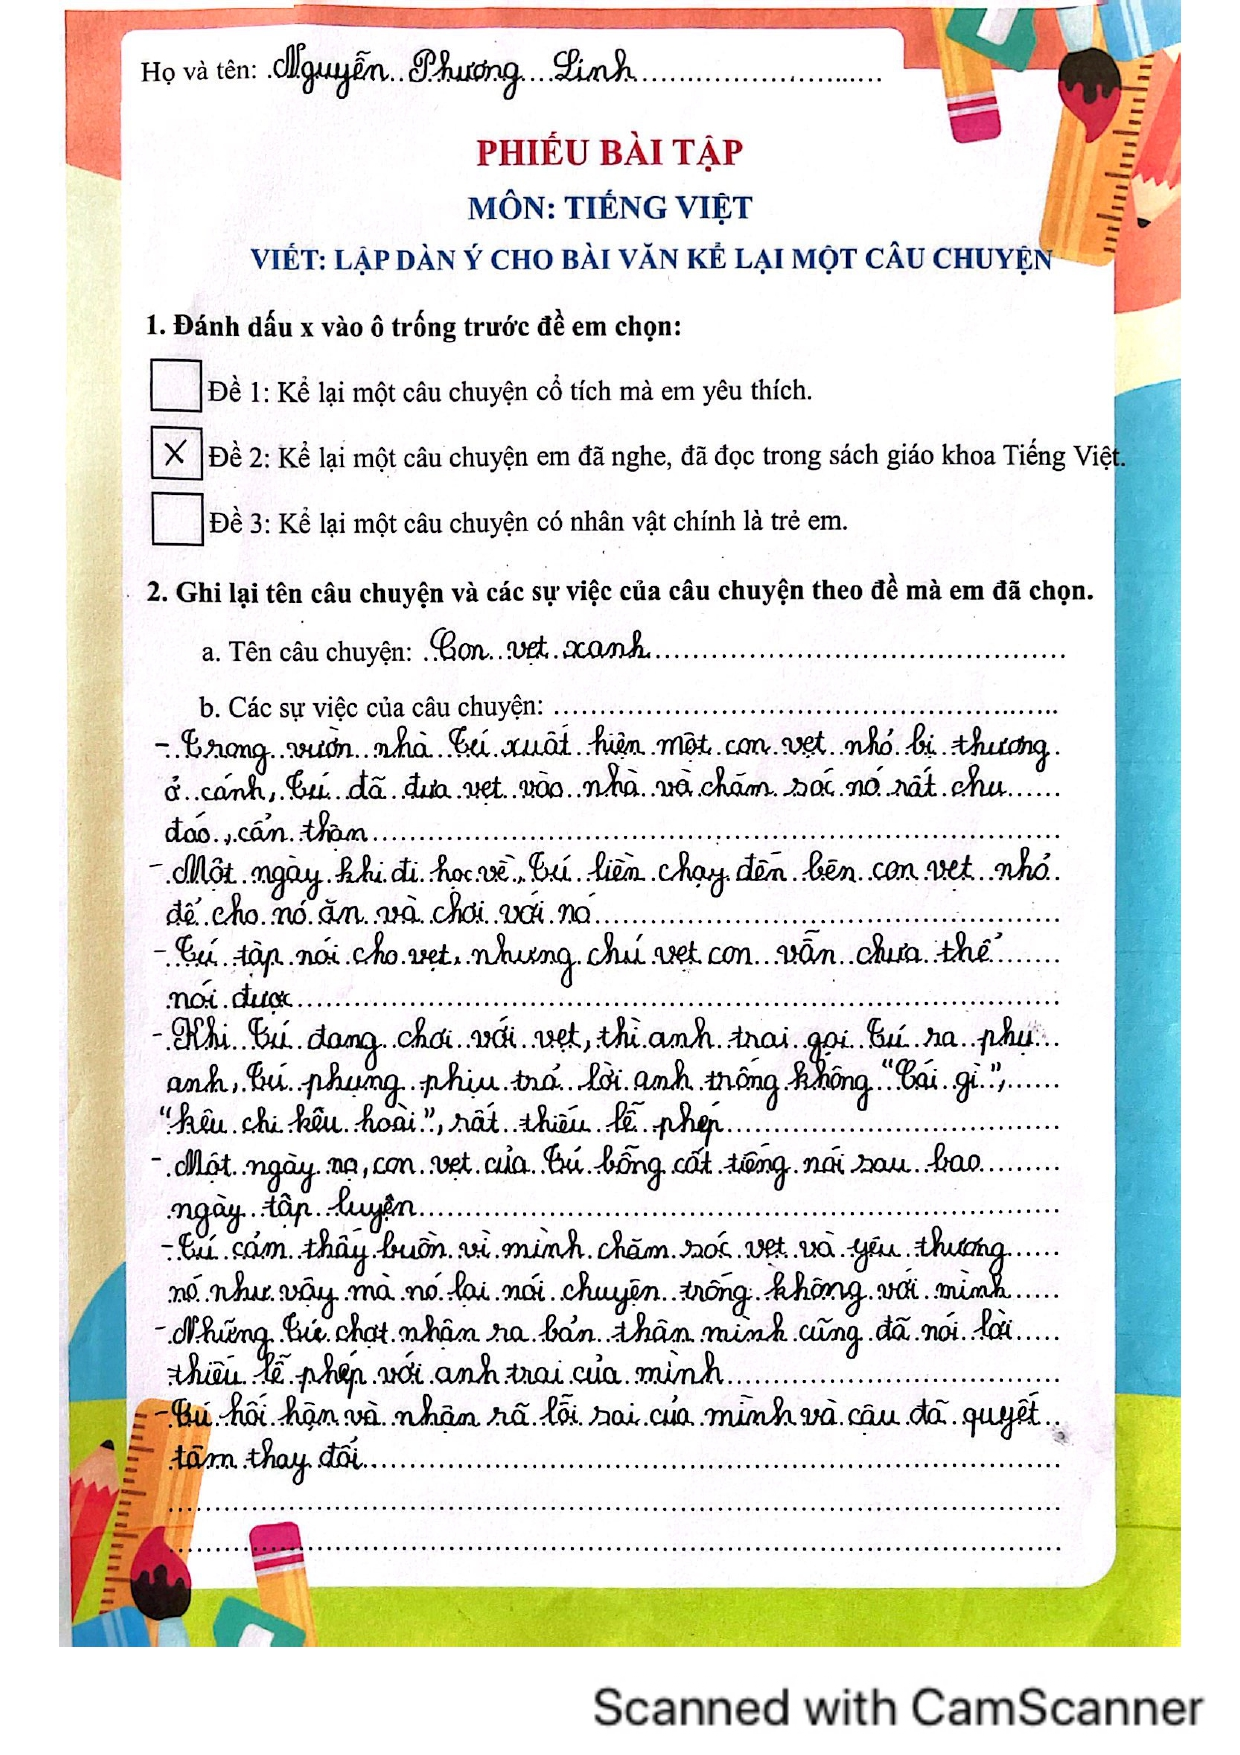 Họ và tên: Nguyễn Phương Linh
PHIẾU BÀI TẬP
MÔN: TIẾNG VIỆT
VIẾT: LẬP DÀN Ý CHO BÀI VĂN KỂ LẠI MỘT CÂU CHUYỆN
1. Đánh dấu x vào ô trống trước đề em chọn:
Đề 1: Kể lại một câu chuyện cổ tích mà em yêu thích.
X Đề 2: Kể lại một câu chuyện em đã nghe, đã đọc trong sách giáo khoa Tiếng Việt.
Đề 3: Kể lại một câu chuyện có nhân vật chính là trẻ em.
2. Ghi lại tên câu chuyện và các sự việc của câu chuyện theo đề mà em đã chọn.
a. Tên câu chuyện: Con vẹt xanh
b. Các sự việc của câu chuyện:
- Trong vườn nhà Tú xuất hiện một con vẹt nhỏ bị thương
ở cánh, Tú đã đưa vẹt vào nhà và chăm sóc nó rất chu
đáo, cẩn thận
- Một ngày khi đi học về, Tú liền chạy đến bên con vẹt nhỏ
để cho nó ăn và chơi với nó
- Tú tập nói cho vẹt, nhưng chú vẹt con vẫn chưa thể
nói được
- Khi Tú đang chơi với vẹt, thì anh trai gọi Tú ra phụ
anh, Tú phụng phịu trả lời anh trống không "Cái gì",
"kêu chi kêu hoài", rất thiếu lễ phép
- Một ngày nọ, con vẹt của Tú bỗng cất tiếng nói sau bao
ngày tập luyện
- Tú cảm thấy buồn vì mình chăm sóc vẹt và yêu thương
nó như vậy mà nó lại nói chuyện trống không với mình
- Những Tú chợt nhận ra bản thân mình cũng đã nói lời
thiếu lễ phép với anh trai của mình
- Tú hối hận và nhận rõ lỗi sai của mình và cậu đã quyết
tâm thay đổi
Scanned with CamScanner